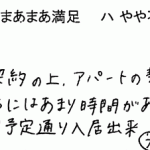 まあまあ満足 ハ やや
契約の上、アパートの
にはあまり時間があ
予定通り入居出来